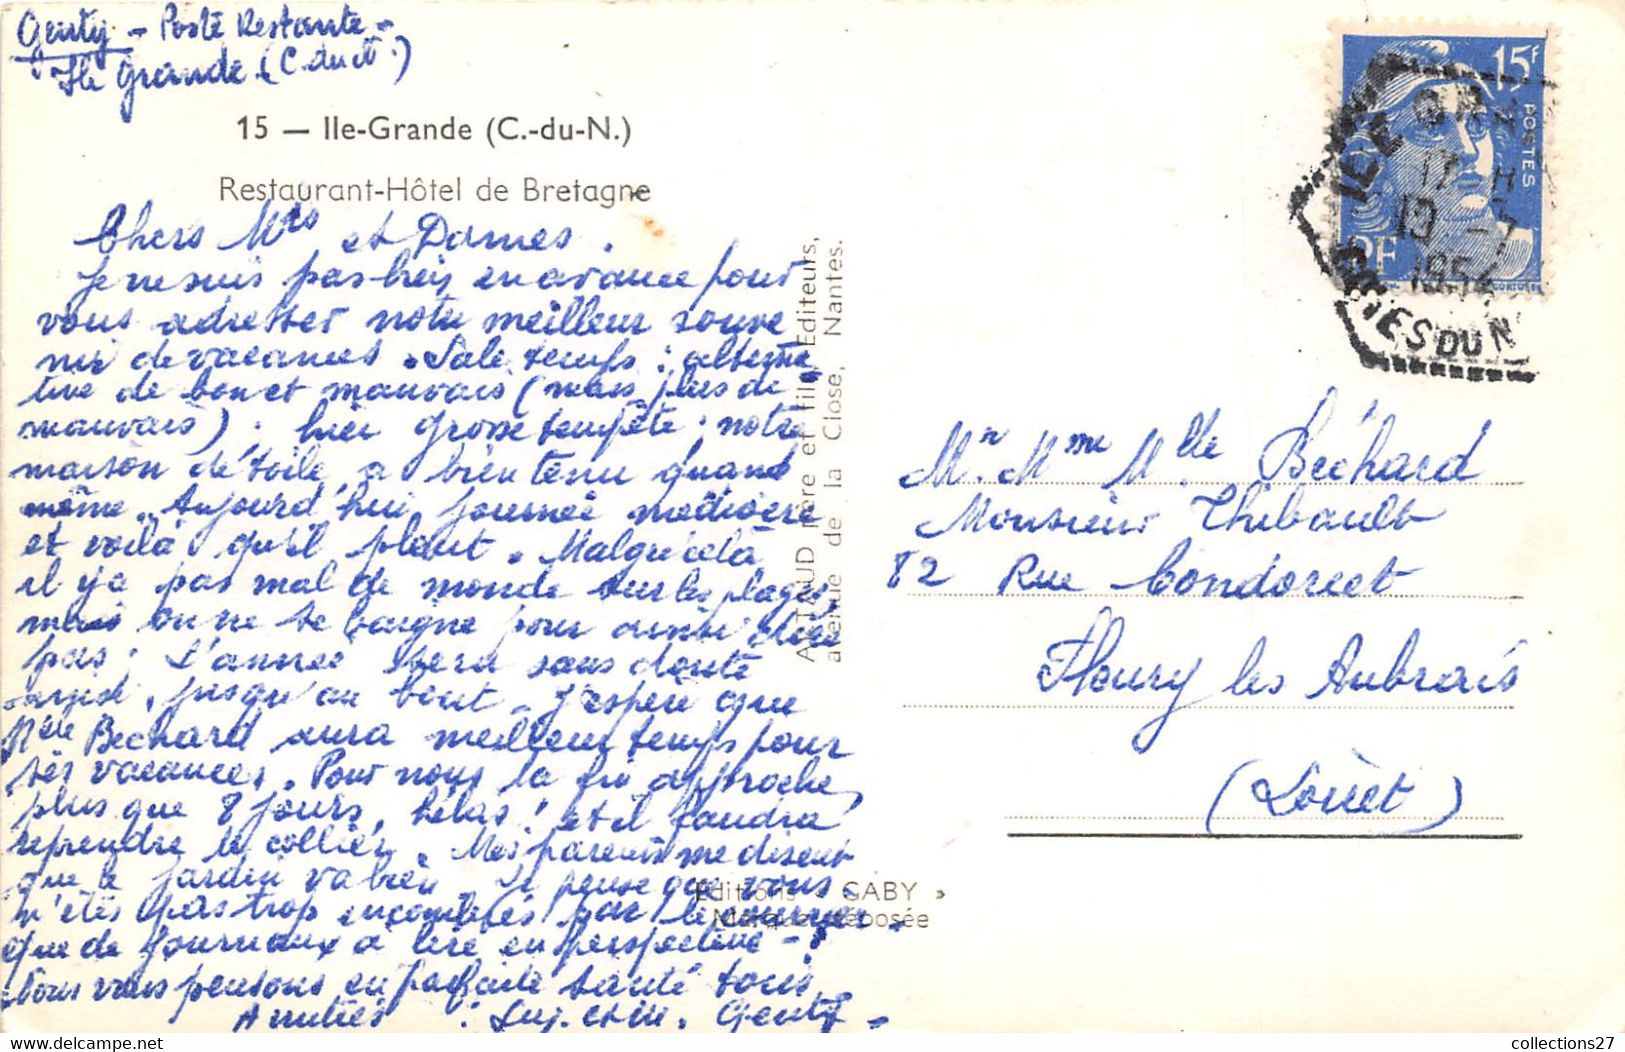 Genty - Poste Restante -
Ile Grande (C du N.)
15 — Ile-Grande (C.-du-N.)
Restaurant-Hôtel de Bretagne
Chers Mrs et Dames.
Je ne suis pas très en avance pour
vous adresser notre meilleur souve
nir de vacances. Sale temps : alterna
tive de bon et mauvais (mais plus de
mauvais). hier grosse tempête ; notre
maison de toile a bien tenu quand
même. Aujourd'hui, journée médiocre
et voilà qu'il pleut. Malgré cela
il y a pas mal de monde sur les plages,
mais on ne se baigne pour ainsi dire
pas ; L'année sera sans doute
jusqu'au bout. J'espère que
Mlle Bechard aura meilleur temps pour
ses vacances. Pour nous la fin approche,
plus que 8 jours, hélas ! et il faudra
reprendre le collier. Mes parents me disent
que le jardin va bien. Je pense que vous
n'êtes pas trop encombrés par le courrier -
que de journaux à lire en perspective - !
Nous vous pensons en parfaite santé tous.
Amitiés : Genty -
ARTAUD Père et fils, Editeurs,
avenue de la Close, Nantes.
Editions « GABY »
Marque déposée
15F
POSTES
RF
ILE GRA
17 H
19 - 7
1954
COTES DU N
Mr. Mme Mlle Béchard
Monsieur Thibault
82 Rue Condorcet
Fleury les Aubrais
(Loiret)
collections27